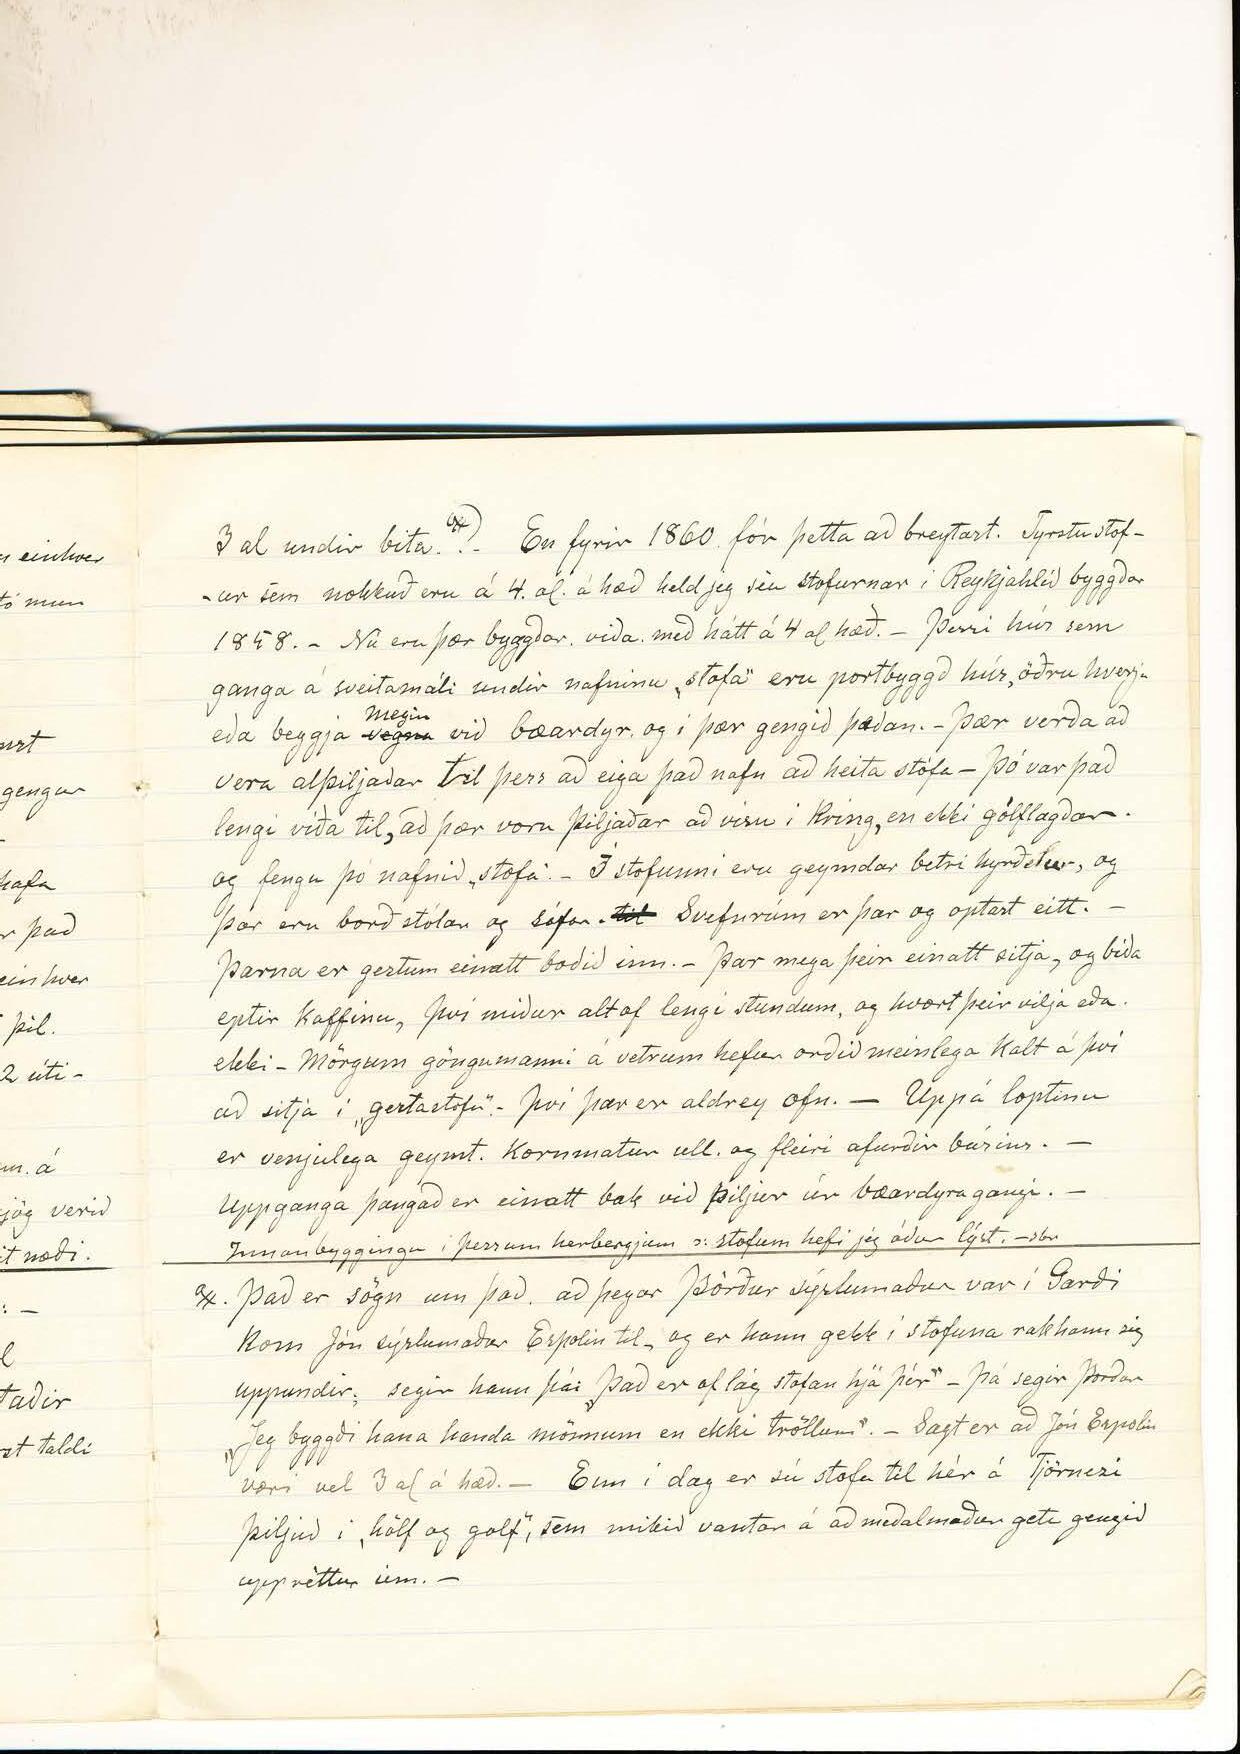 3 al undir bita. x) .- En fyrir 1860 fór þetta að breytast. Fyrstu stof-
-ur sem nokkuð eru á 4. al. á hæð held jeg séu stofurnar í Reykjahlíð byggðar
1858. - Nú eru þær byggðar. víða. með hátt á 4 al hæð. - Þessi hús sem
ganga á sveitamáli undir nafninu „stofa" eru portbyggð hús, öðru hverju
eða beggja vegna megin við bæardyr. og í þær gengið þaðan. - Þær verða að
vera alþiljaðar til þess að eiga það nafn að heita stofa - Þó var það
lengi víða til, að þær voru þiljaðar að vísu í kring, en ekki gólflagðar.
og fengu þó nafnið „stofa". - Í stofunni eru geymdar betri hyrðslur, og
þar eru borð stólar og sófar. til Svefnrúm er þar og optast eitt. -
Þarna er gestum einatt boðið inn. - Þar mega þeir einatt sitja, og bíða
eptir kaffinu, því miður alt of lengi stundum, og hvort þeir vilja eða.
ekki - Mörgum göngumanni á vetrum hefur orðið meinlega kalt á því
að sitja í „gestastofu". - því þar er aldrey ofn. - Uppá loptinu
er venjulega geymt. Kornmatur ull. og fleiri afurðir búsins. -
Uppganga þangað er einatt bak við þiljur úr bæardyragangi. -
Innanbyggingu í þessum herbergjum ɔ: stofum hefi jeg áður lýst. - sbr
x. Það er sögn um það. að þegar Þórður sýslumaður var í Garði
kom Jón sýslumaður Espolin til, og er hann gekk í stofuna rak hann sig
uppundir; segir hann þá: „Það er of lág stofan hjá þér" - Þá segir Þórður
„Jeg byggði hana handa mönnum en ekki tröllum". - Sagt er að Jón Espolin
væri vel 3 al á hæð. - Enn í dag er sú stofa til hér á Tjörnesi
þiljuð í „hólf og gólf", sem mikið vantar á að meðalmaður geti gengið
uppréttur inn. -
einhver
mun
gengur
hafa
það
einhver
þil.
2 úti-
á
verið
næði.
taldi